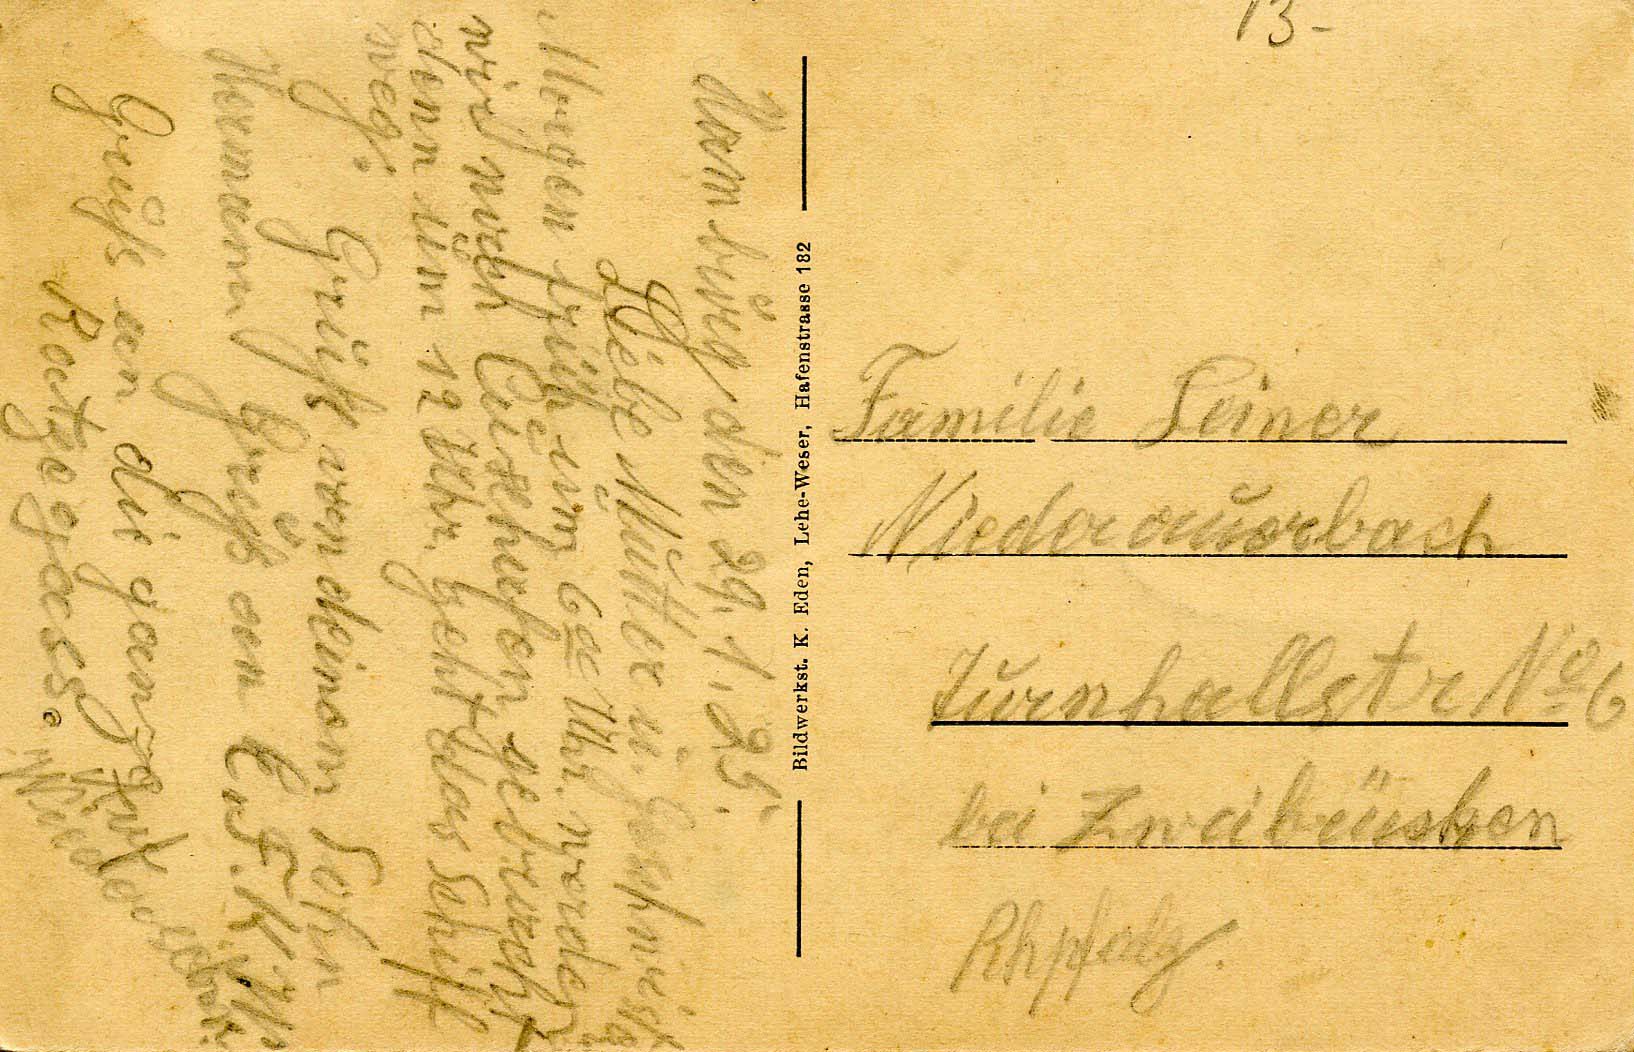 13-
Hamburg den 29.1.25.
Liebe Mutter u. Geschwister
Morgen früh um 6 Uhr. werden
wir nach Cuxhafen gebracht
denn um 12 Uhr. geht das Schiff
weg.
Grüß von deinem Sohn
Hermann Gruß an
Gruß an die ganze
Rottgegass.
Wiedersehn
Bildwerkst. K. Eden, Lehe-Weser, Hafenstrasse 182
Familie Leiner
Niederauerbach
Turnhallstr No 6
bei Zweibrücken
Rhpfalz.